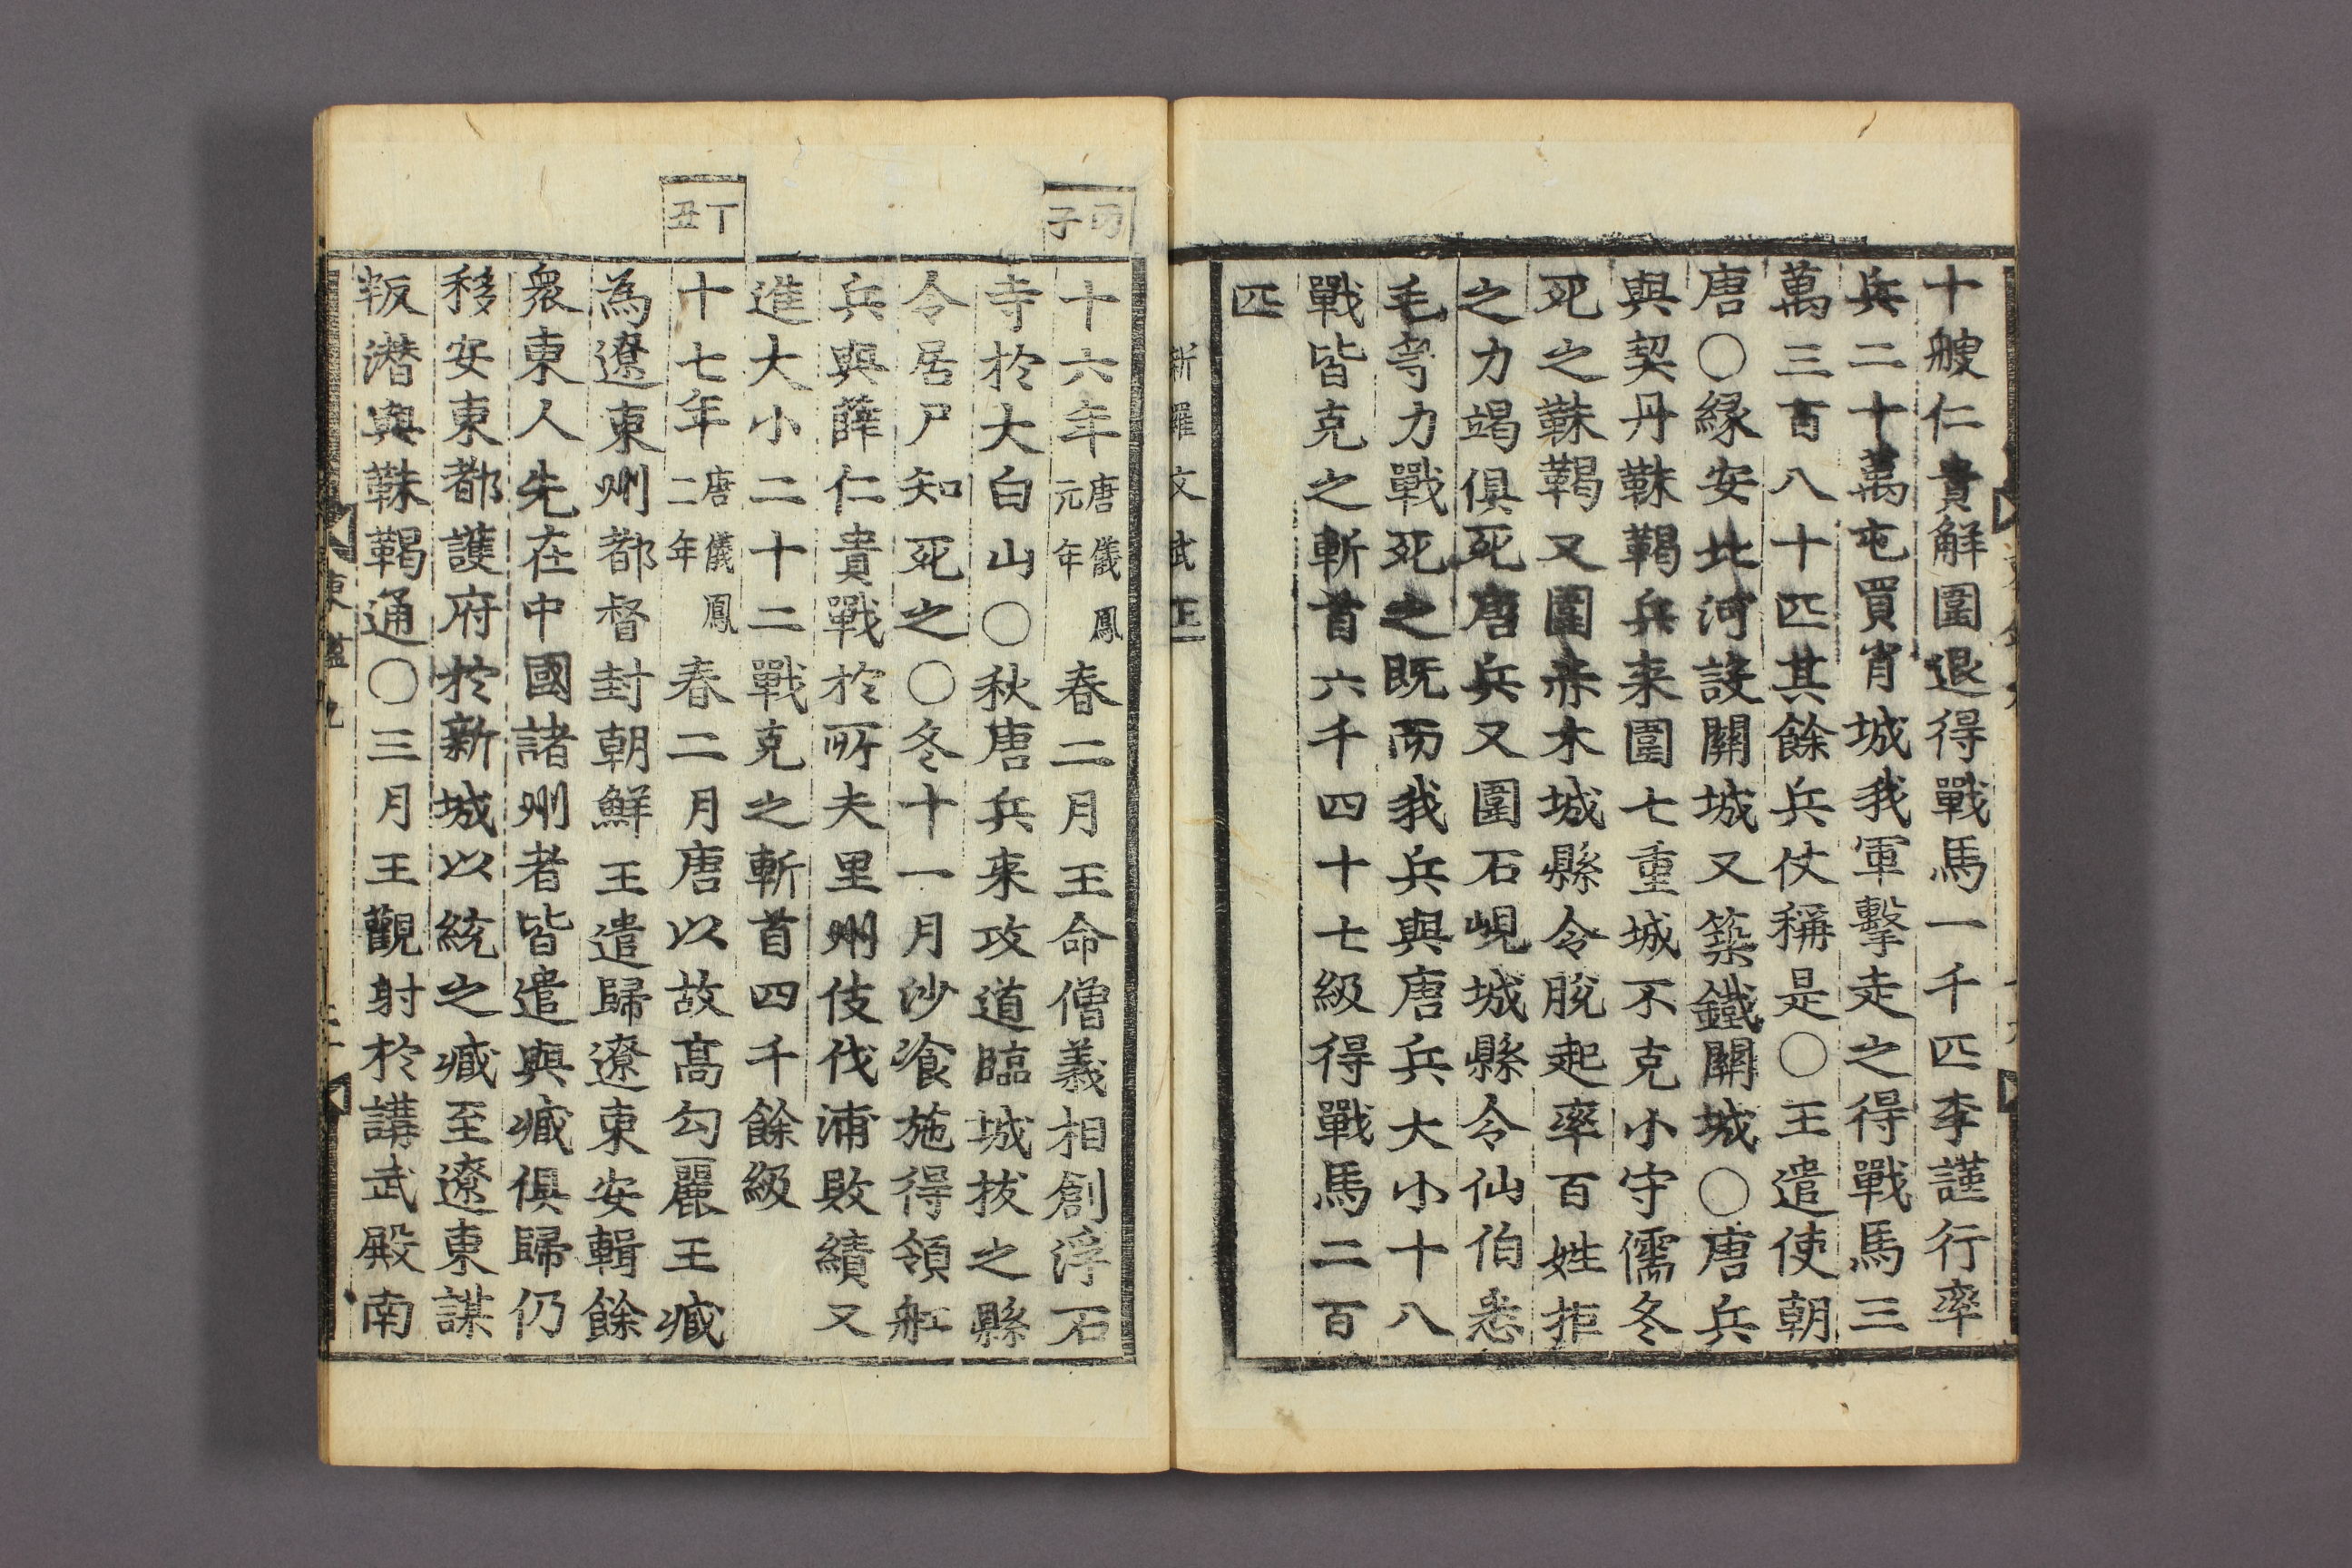 十艘仁貴解圍退得戰馬一千匹李謹行率
兵二十萬屯買肖城我軍擊走之得戰馬三
萬三百八十匹其餘兵仗稱是〇王遣使朝
唐〇緣安北河設關城又築鐵關城〇唐兵
與契丹靺鞨兵来圍七重城不克小守儒冬
死之靺鞨又圍赤木城縣令脫起率百姓拒
之力竭俱死唐兵又圍石峴城縣令仙伯悉
毛等力戰死之既而我兵與唐兵大小十八
戰皆克之斬首六千四十七級得戰馬二百
匹
新羅文武王
丙子
十六年唐儀鳳元年春二月王命僧義相創浮石
寺於大白山〇秋唐兵来攻道臨城拔之縣
令居尸知死之〇冬十一月沙飡施得領舡
兵與薛仁貴戰於所夫里州伎伐浦敗績又
進大小二十二戰克之斬首四千餘級
丁丑
十七年唐儀鳳二年春二月唐以故髙勾麗王臧
為遼東州都督封朝鮮王遣歸遼東安輯餘
衆東人先在中國諸州者皆遣與臧俱歸仍
移安東都護府於新城以統之臧至遼東謀
叛潜與靺鞨通〇三月王觀射於講武殿南